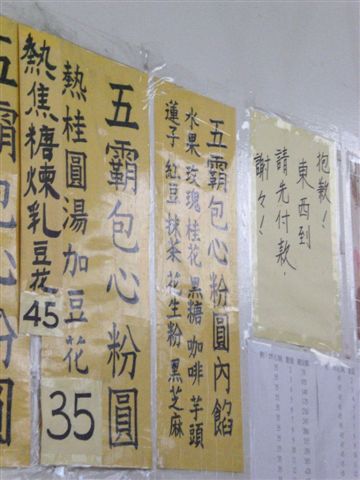 抱歉！
東西到
請先付款.
謝々！
五霸包心粉圓內餡
水果 玫瑰 桂花 黑糖 咖啡 芋頭
蓮子 紅豆 抹茶 花生粉 黑芝麻
五霸包心粉圓
熱桂圓湯加豆花
35
熱焦糖煉乳豆花
45
五霸包心粉圓